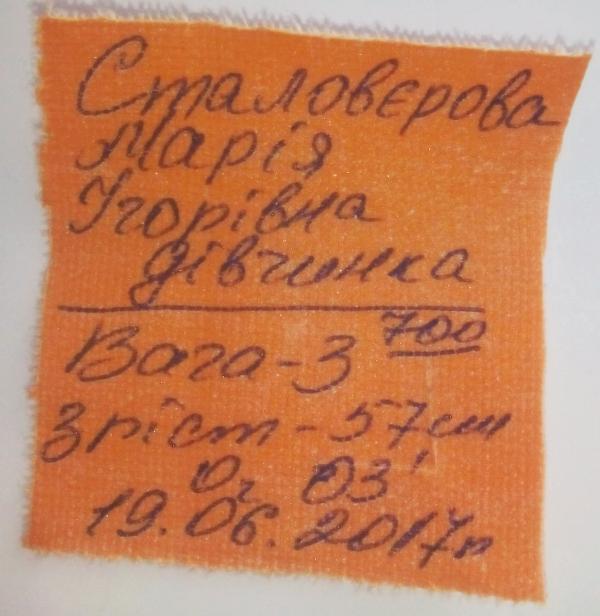 Сталовєрова
Марія
Ігорівна
дівчинка
Вага - 3 700
Зріст - 57 см
0г 03'
19.06.2017р